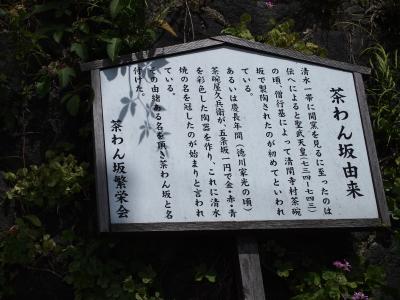 茶わん坂由来
清水一帯に開窯を見るに至ったのは
伝へによると聖武天皇(七三四-七四三)
の頃、僧行基によって清閑寺村茶碗
坂で製陶されたのが初めてといわれ
ている。
あるいは慶長年間(徳川家光の頃)
茶碗屋久兵衛が、五条坂一円で金・赤・青
を彩色した陶器を作り、これに清水
焼の名を冠したのが始まりと言われ
ている。
その由緒ある名を頂き茶わん坂と名
付けた。
茶わん坂繁栄会